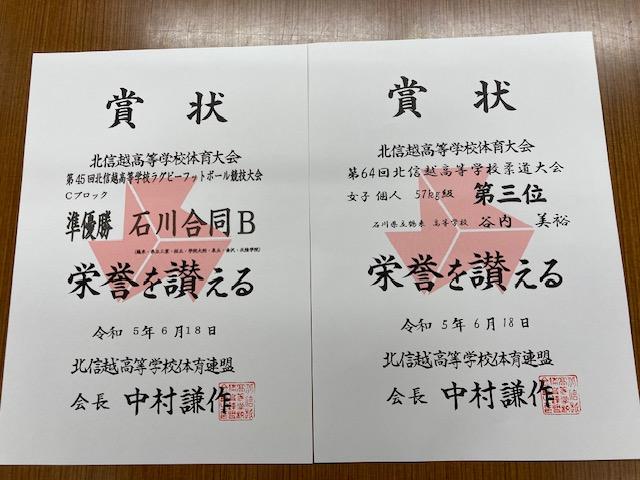 賞状
北信越高等学校体育大会
第45回北信越高等学校ラグビーフットボール競技大会
Cブロック
準優勝 石川合同B
栄誉を讃える
令和5年6月18日
北信越高等学校体育連盟
会長 中村謙作
賞状
北信越高等学校体育大会
第64回北信越高等学校柔道大会
女子個人 57kg級 第三位
石川県立鶴来高等学校 谷内 美裕
栄誉を讃える
令和5年6月18日
北信越高等学校体育連盟
会長 中村謙作